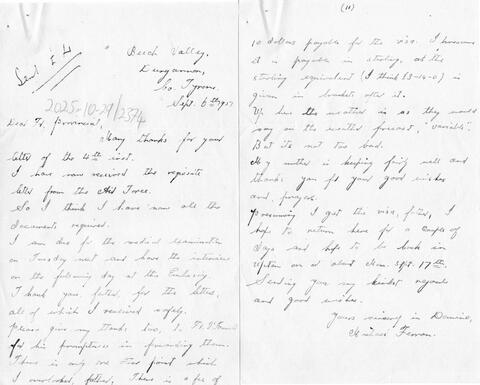 Sent £4
Beech Valley,
Dungannon,
Co. Tyrone.
Sept. 6th 1957
2025-10-29/2374
Dear Fr. Provincial,
Many thanks for your
letter of the 4th inst.
I have now received the requisite
letter from the
So I think I have now all the
documents required.
I am due for the medical examination
on Tuesday next and have the interview
on the following day at the Embassy.
I thank you, father, for the letters,
all of which I received safely.
Please give my thanks too, to Fr.
for his promptness in forwarding them.
There is only one point which
I overlooked, father. There is a fee of
(11)
10 dollars payable for the visa. I
it is payable in sterling, at the
sterling equivalent (I think £3-16-0) is
given in brackets after it.
Up here the weather is as they would
say on the weather forecast, "variable".
But it's not too bad.
My mother is keeping fairly well and
thanks you for your good wishes
and prayers.
Presuming I get the visa, father, I
hope to return here for a couple of
days and hope to be back in
Upton on or about Sept. 17th.
Sending you my kindest regards
and good wishes.
Yours sincerely in Domino,